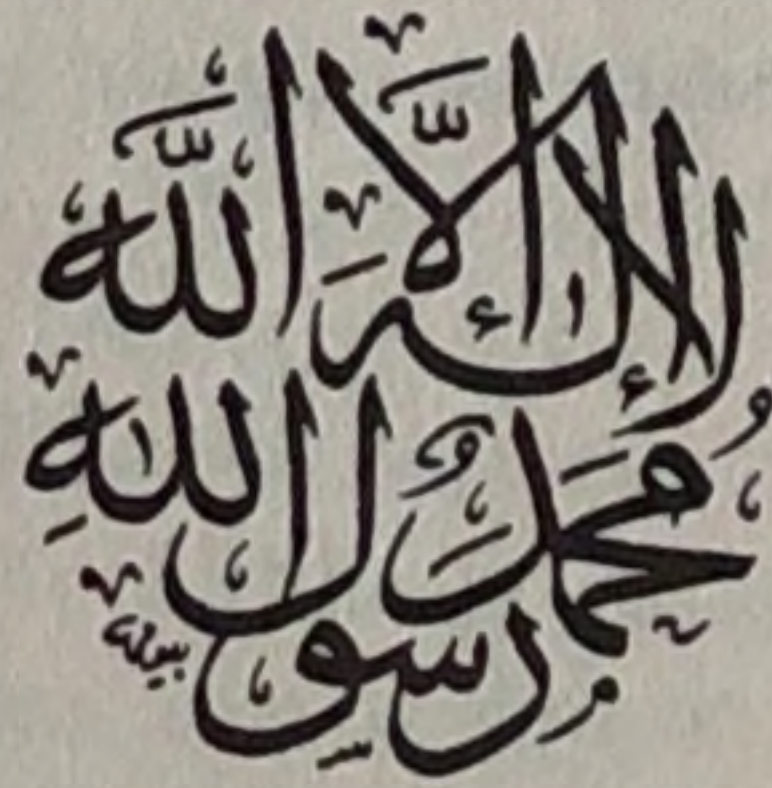 لَا إِلٰهَ إِلَّا اللّٰهُ
مُحَمَّدٌ رَسُولُ اللهِ